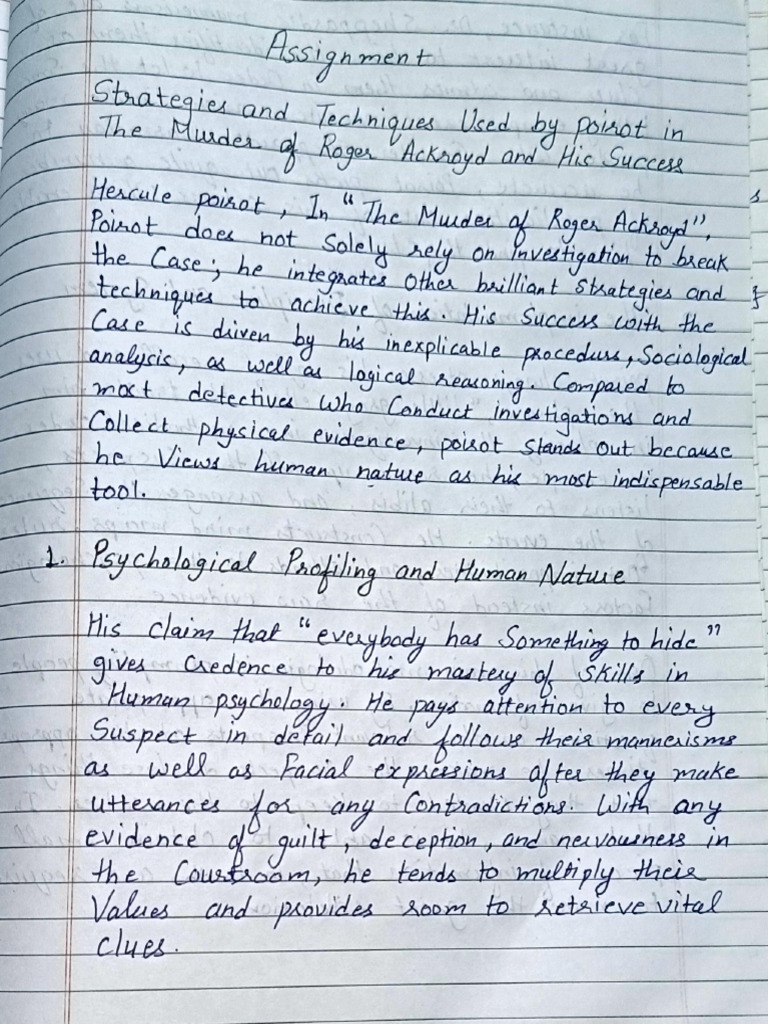 Assignment
Strategies and Techniques Used by poirot in
The Murder of Roger Ackroyd and His Success
Hercule poirot, In "The Murder of Roger Ackroyd",
Poirot does not Solely rely on Investigation to break
the Case; he integrates Other brilliant Strategies and
techniques to achieve this. His Success with the
Case is driven by his inexplicable procedure, Sociological
analysis, as well as logical reasoning. Compared to
most detectives Who Conduct investigations and
Collect physical evidence, poirot Stands Out because
he Views human nature as his most indispensable
tool.
1. Psychological Profiling and Human Nature
His Claim that "everybody has Something to hide"
gives Credence to his mastery of Skills in
Human psychology. He pays attention to every
Suspect in detail and follows their mannerisms
as well as Facial expressions after they make
utterances for any Contradictions. With any
evidence of guilt, deception, and nervousness in
the Courtroom, he tends to multiply their
Values and provides room to retrieve vital
Clues.